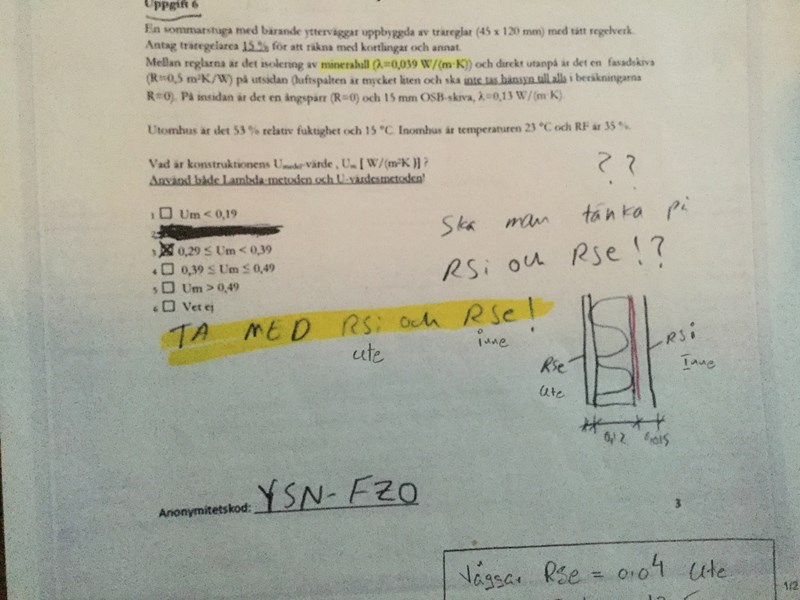 Uppgift 6
En sommarstuga med bärande ytterväggar uppbyggda av träreglar (45 x 120 mm) med tätt regelverk.
Antag träregelarea 15 % för att räkna med kortlingar och annat.
Mellan reglarna är det isolering av mineralull (λ=0,039 W/(m·K)) och direkt utanpå är det en fasadskiva
(R=0,5 m²K/W) på utsidan (luftspalten är mycket liten och ska inte tas hänsyn till alls i beräkningarna
R=0). På insidan är det en ångspärr (R=0) och 15 mm OSB-skiva, λ=0,13 W/(m·K).
Utomhus är det 53 % relativ fuktighet och 15 °C. Inomhus är temperaturen 23 °C och RF är 35 %.
Vad är konstruktionens Umedel-värde, Um [ W/(m²K )] ?
Använd både Lambda-metoden och U-värdesmetoden!
1 Um < 0,19
2
3 0,29 ≤ Um < 0,39
4 0,39 ≤ Um ≤ 0,49
5 Um > 0,49
6 Vet ej
? ?
Ska man tänka på
RSi och RSe!?
TA MED RSi och RSe!
ute inne
RSe
ute
RSi
Inne
0,12 0,015
Anonymitetskod: YSN-FZO
3
Väggar RSe = 0.04 ute
1/2